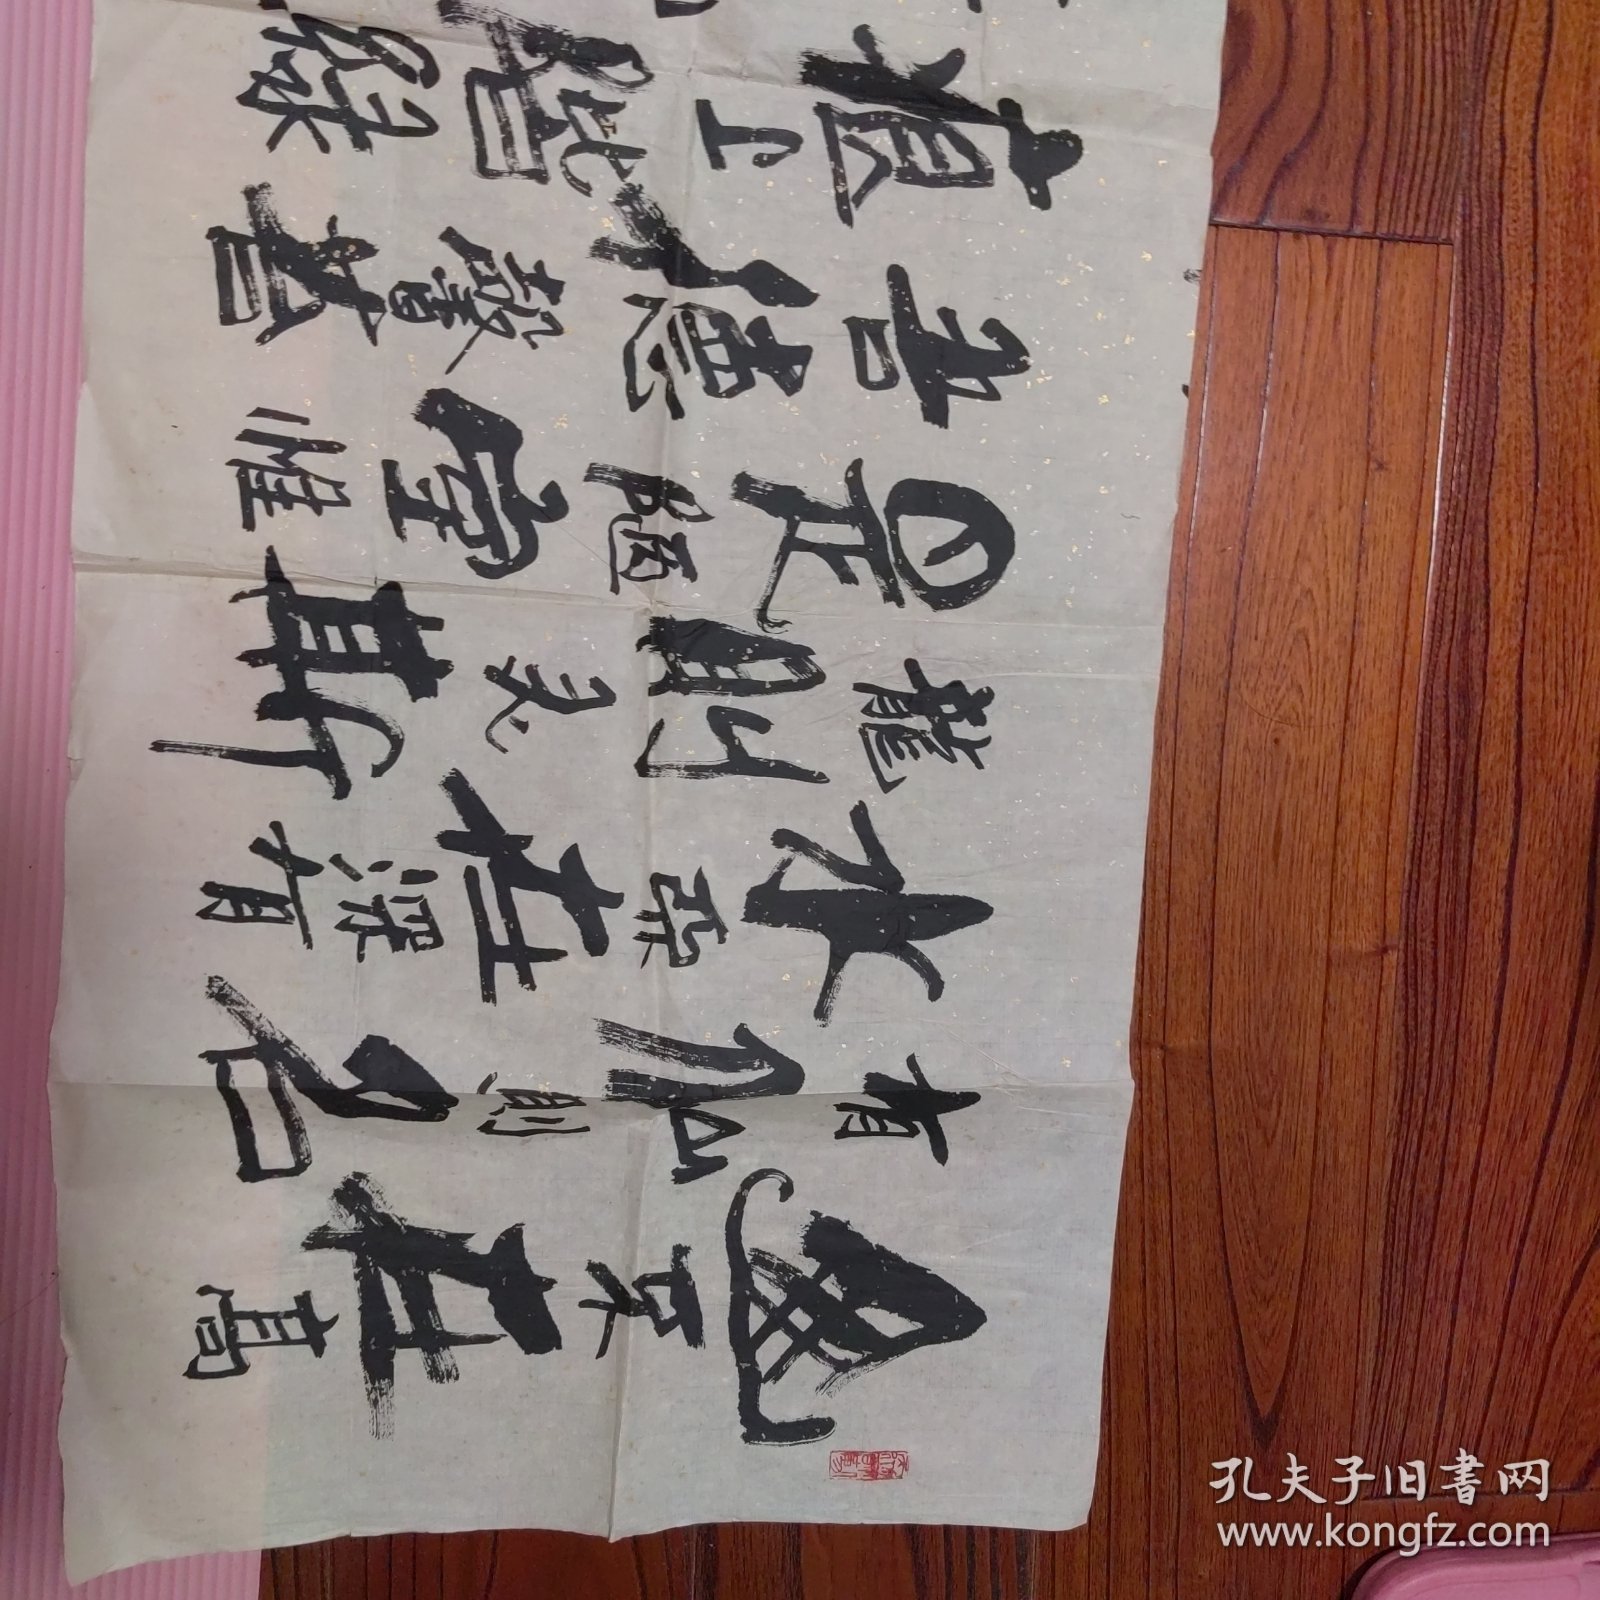 山不在高
有仙則名
水不在深有
龍則灵斯
是陋室惟
吾德馨苔
痕上階綠
孔夫子旧書网
www.kongfz.com